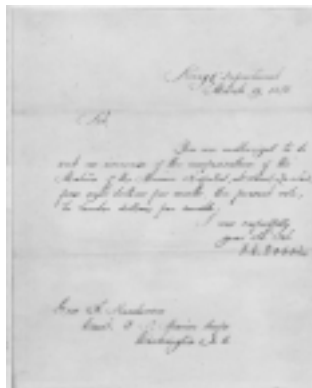 Navy Department
March 19, 185
Sir,
You are authorized to
an increase of the compensation of the
Matron of the Marine Hospital, at
from eight dollars per month, the present rate,
to twelve dollars per month.
I am respectfully
your Ob. Sert.
J.C. Dobbin
Gen A. Henderson
Comdt. Marine Corps
Washington, D.C.